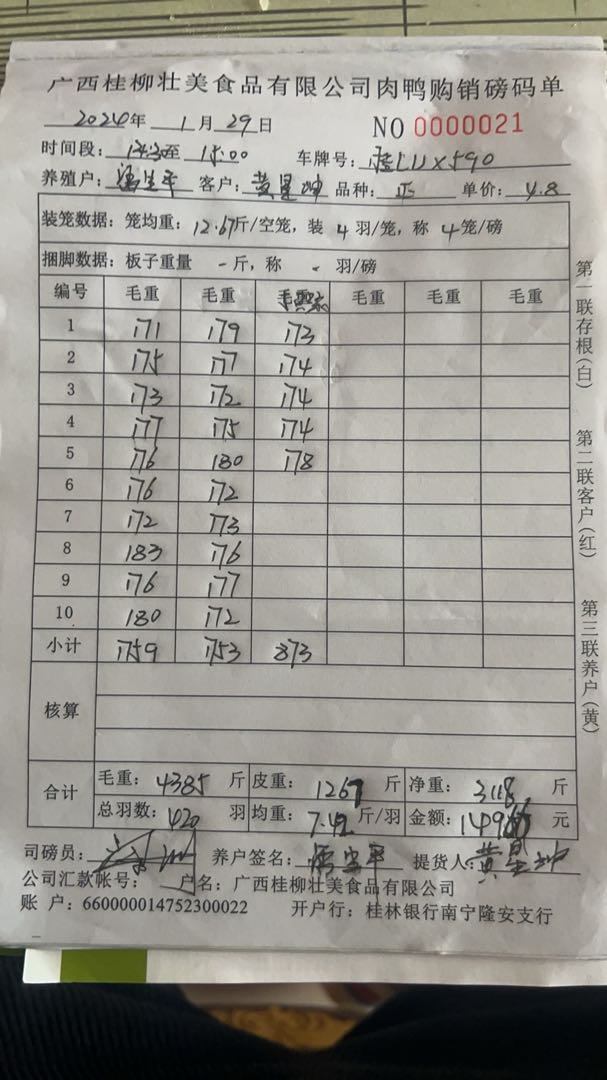 广西桂柳壮美食品有限公司肉鸭购销磅码单
2024年 1月 29日 NO 0000021
时间段: 14:30至 15:00 车牌号:
养殖户: 客户: 黄星坤 品种: 正 单价: 4.8
装笼数据: 笼均重: 12.67斤/空笼, 装 4 羽/笼, 称 4笼/磅
捆脚数据: 板子重量 - 斤, 称 - 羽/磅
编号 毛重 毛重 毛重 毛重 毛重
1 171 179 173
2 175 177 174
3 173 172 174
4 177 175 174
5 176 180 178
6 176 172
7 172 173
8 183 176
9 176 177
10 180 172
小计 1759 1753 873
核算
合计 毛重: 4385 斤 皮重: 1267 斤 净重: 3118 斤
总羽数: 420 羽 均重: 7.42 斤/羽 金额: 元
司磅员: 养户签名: 提货人: 黄星坤
公司汇款帐号: 户名: 广西桂柳壮美食品有限公司
账 户: 660000014752300022 开户行: 桂林银行南宁隆安支行
第一联存根(白)
第二联客户(红)
第三联养户(黄)